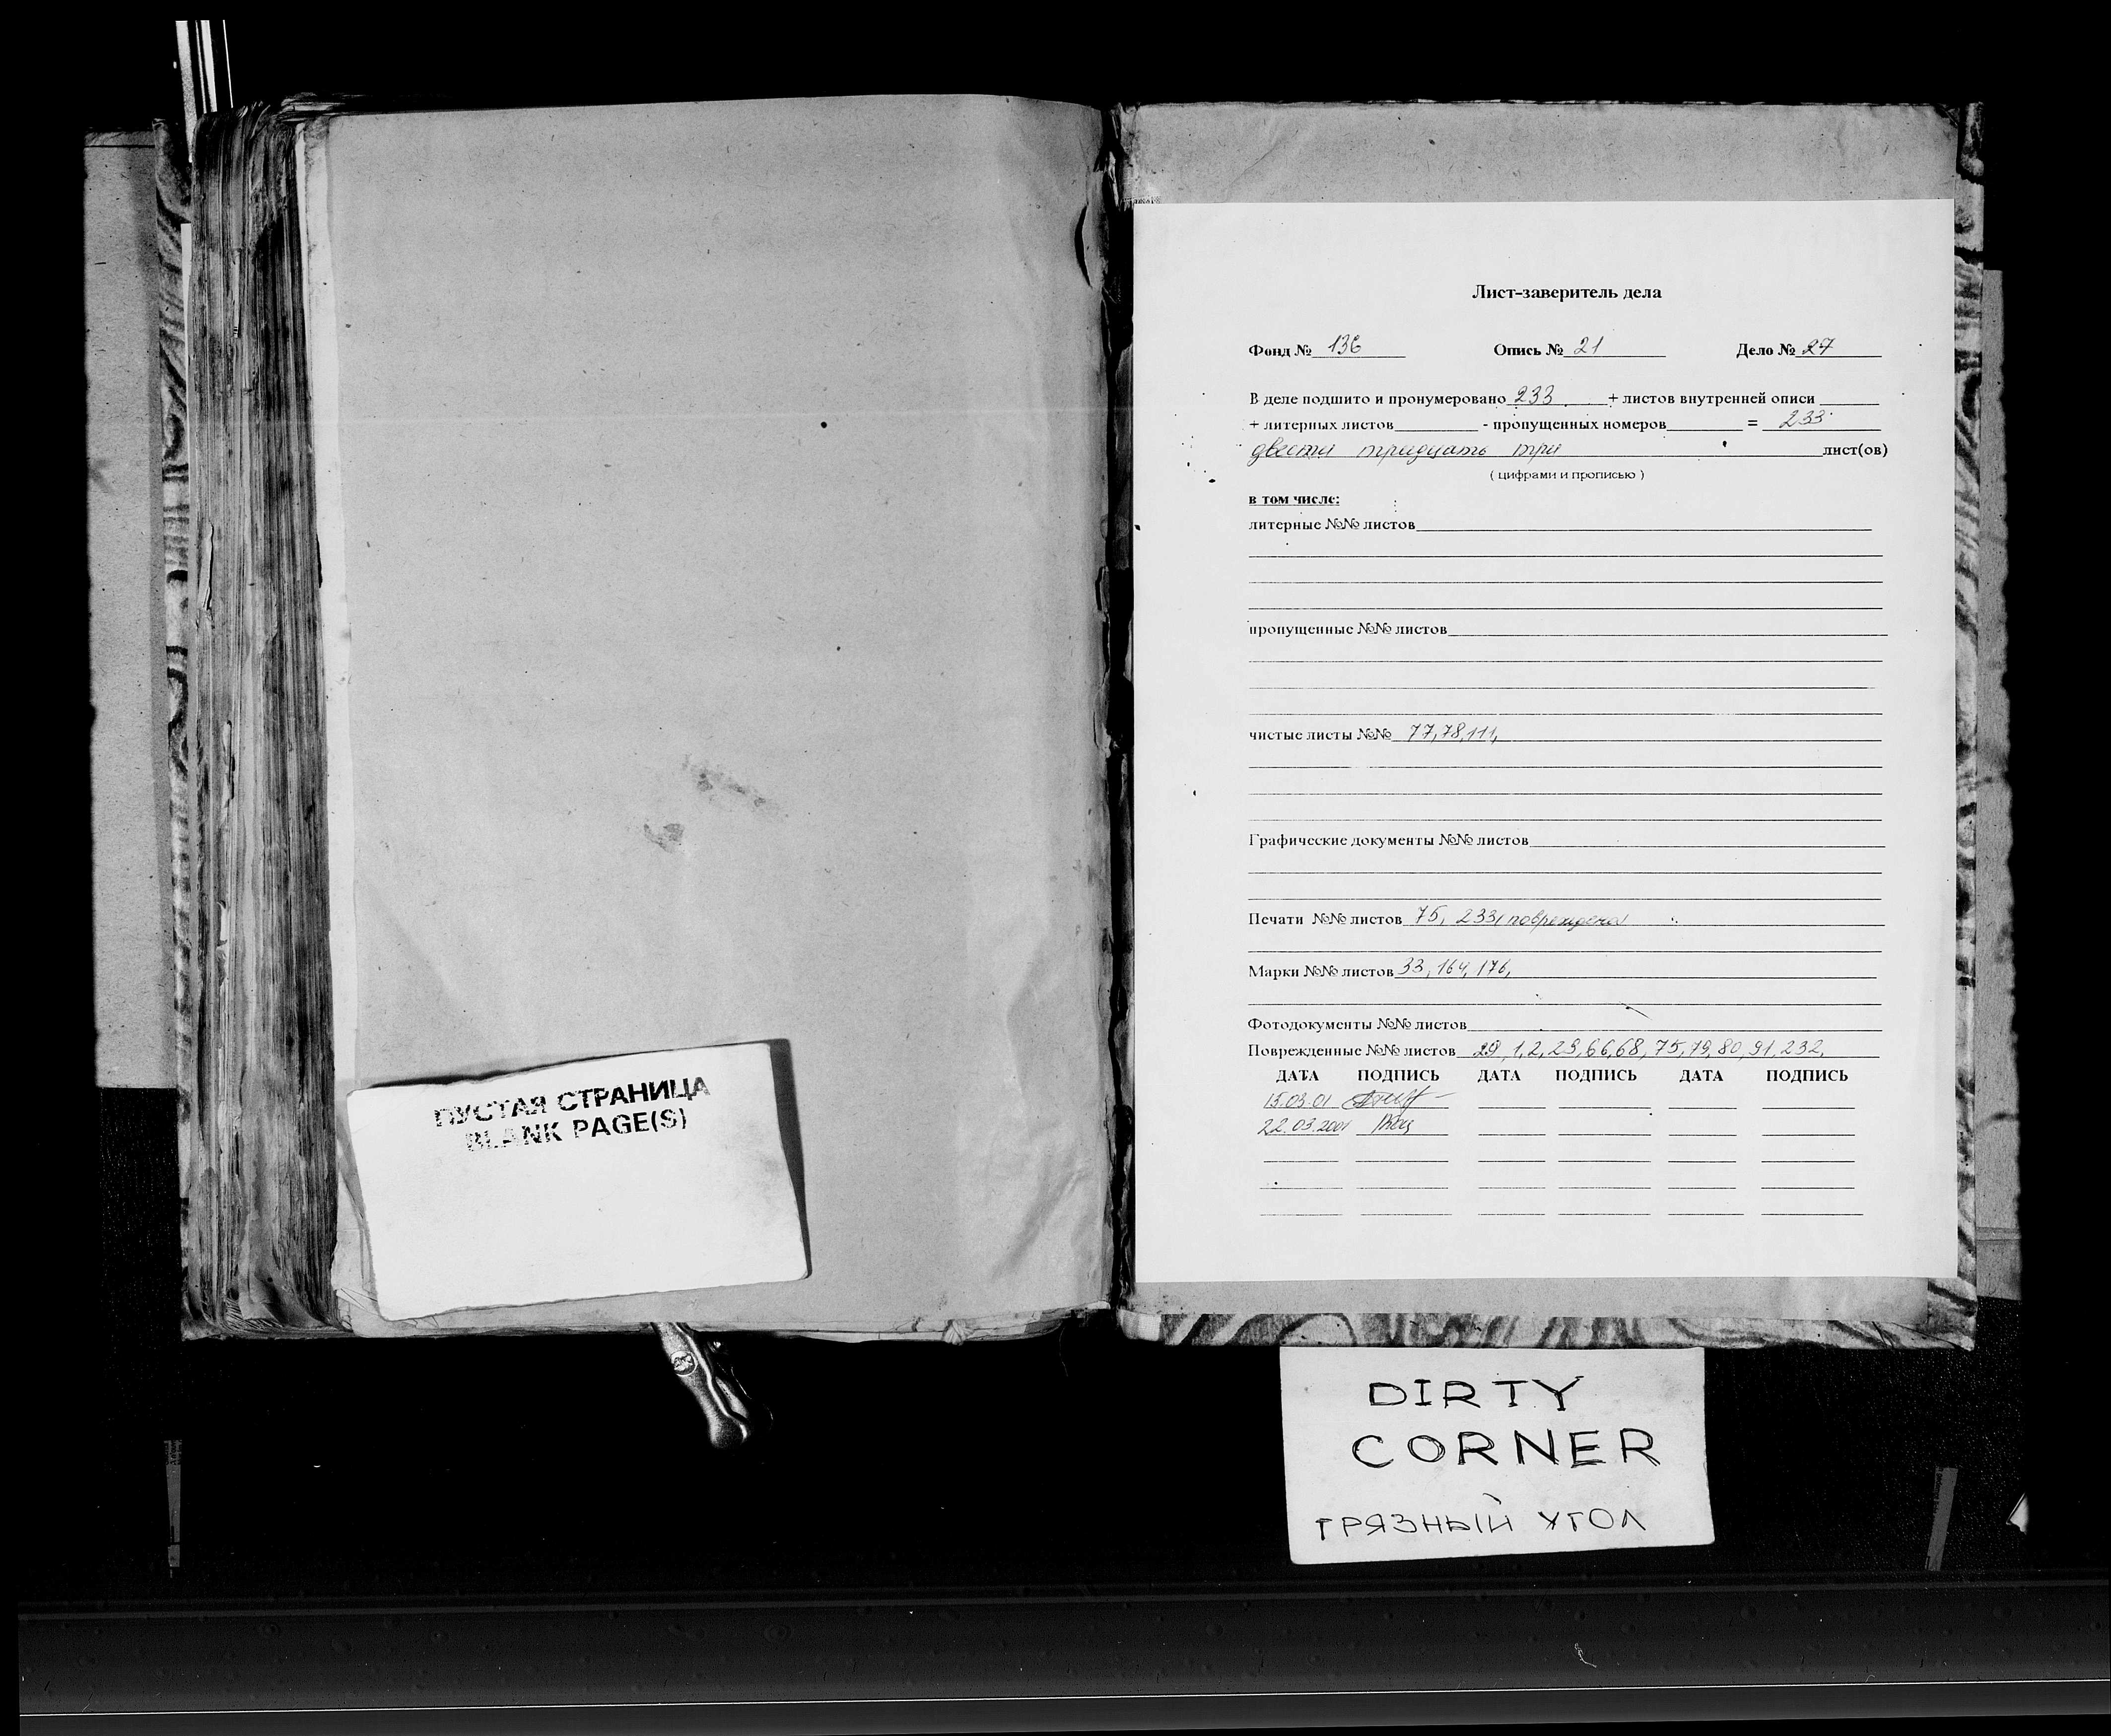 ПУСТАЯ СТРАНИЦА
BLANK PAGE(S)
Лист-заверитель дела
Фонд № 136 Опись № 21 Дело № 27
В деле подшито и пронумеровано 233 + листов внутренней описи
+ литерных листов - пропущенных номеров = 233
двести тридцать три лист(ов)
( цифрами и прописью )
в том числе:
литерные №№ листов
пропущенные №№ листов
чистые листы №№ 77, 78, 111,
Графические документы №№ листов
Печати №№ листов 75, 233, повреждена
Марки №№ листов 33, 164, 176,
Фотодокументы №№ листов
Поврежденные №№ листов 1, 2, 29, 66, 68, 75, 79, 80, 91, 232,
ДАТА ПОДПИСЬ ДАТА ПОДПИСЬ ДАТА ПОДПИСЬ
15.03.01
22.03.2001
DIRTY
CORNER
ГРЯЗНЫЙ УГОЛ